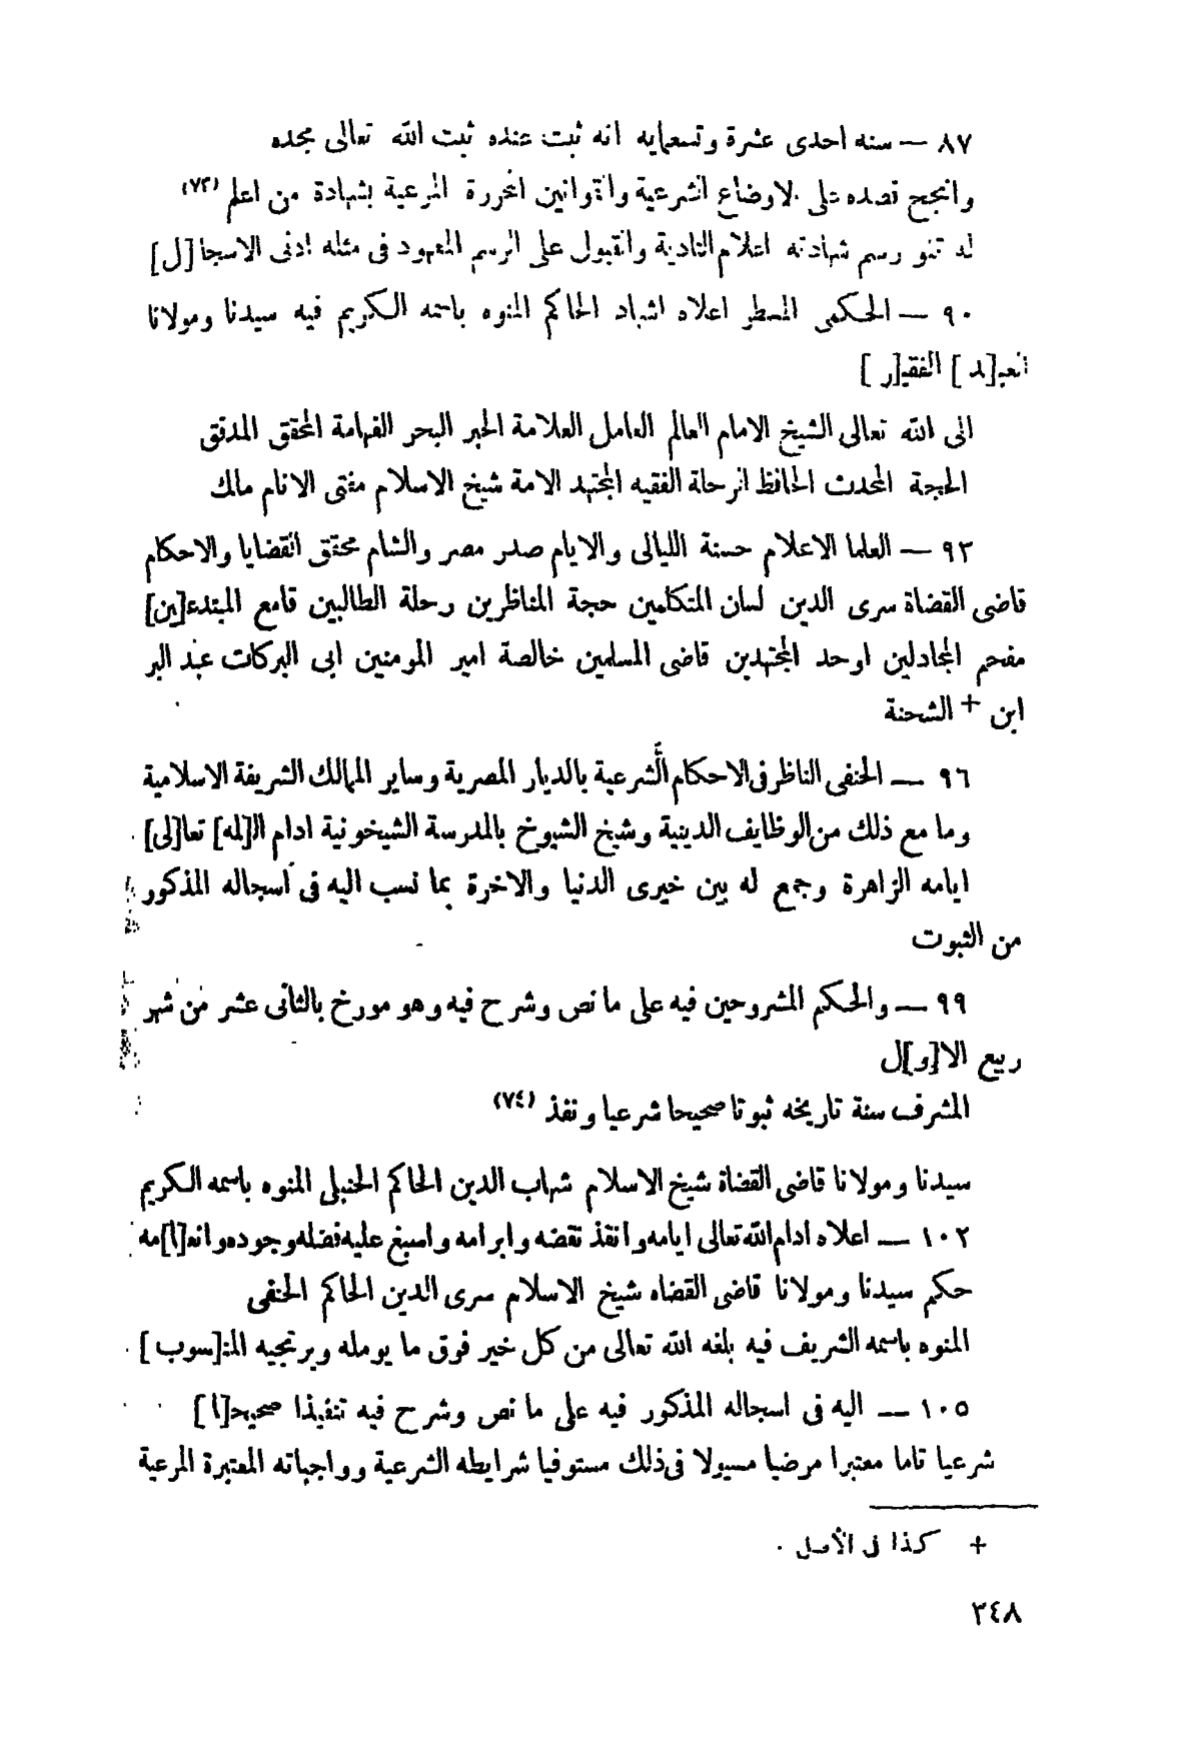 ٨٧ — سنه احدى عشرة وتسعمايه انه ثبت عنده ثبت الله تعالى مجده
وانجح قصده على الاوضاع الشرعية والقوانين المحررة المرعية بشهادة من اعلم (٧٣)
له تلو رسم شهادته اعلام التادية والقبول على الرسم المعهود فى مثله ادنى الاسجا[ل]
٩٠ — الحكمى المسطر اعلاه اشهاد الحاكم المنوه باسمه الكريم فيه سيدنا ومولانا
العبـ[ـد] الفقيـ[ـر]
الى الله تعالى الشيخ الامام العالم العامل العلامة الحبر البحر الفهامة المحقق المدقق
الحجة المحدث الحافظ الرحلة الفقيه المجتهد الامة شيخ الاسلام مفتى الانام مالك
٩٣ — العلما الاعلام حسنة الليالى والايام صدر مصر والشام محقق القضايا والاحكام
قاضى القضاة سرى الدين لسان المتكلمين حجة المناظرين رحلة الطالبين قامع المبتدء[ين]
مفحم المجادلين اوحد المجتهدين قاضى المسلمين خالصة امير المومنين ابى البركات عبد البر
ابن + الشحنة
٩٦ — الحنفى الناظر فى الاحكام الشرعية بالديار المصرية وساير الممالك الشريفة الاسلامية
وما مع ذلك من الوظايف الدينية وشيخ الشيوخ بالمدرسة الشيخونية ادام الـ[ـله] تعا[لى]
ايامه الزاهرة وجمع له بين خيرى الدنيا والاخرة بما نسب اليه فى اسجاله المذكور
من الثبوت
٩٩ — والحكم المشروحين فيه على ما نص وشرح فيه وهو مورخ بالثانى عشر من شهر
ربيع الا[و]ل
المشرف سنة تاريخه ثبوتا صحيحا شرعيا ونفذ (٧٤)
سيدنا ومولانا قاضى القضاة شيخ الاسلام شهاب الدين الحاكم الحنبلى المنوه باسمه الكريم
١٠٢ — اعلاه ادام الله تعالى ايامه وانفذ نقضه وابرامه واسبغ عليه فضله وجوده وانعـ[ـا]مه
حكم سيدنا ومولانا قاضى القضاه شيخ الاسلام سرى الدين الحاكم الحنفى
المنوه باسمه الشريف فيه بلغه الله تعالى من كل خير فوق ما يومله ويرتجيه المنـ[ـسوب]
١٠٥ — اليه فى اسجاله المذكور فيه على ما نص وشرح فيه تنفيذا صحيحـ[ـا]
شرعيا تاما معتبرا مرضيا مسيولا فى ذلك مستوفيا شرايطه الشرعية وواجباته المعتبرة المرعية
+ كذا فى الأصل .
٣٤٨